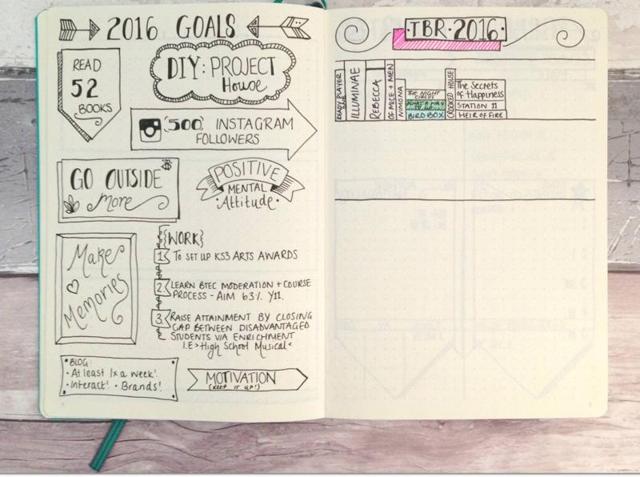 2016 GOALS
READ
52
BOOKS
D.I.Y: PROJECT
House
500 INSTAGRAM
FOLLOWERS
GO OUTSIDE
More
POSITIVE
MENTAL
Attitude
Make
Memories
{WORK}
1 TO SET UP KS3 ARTS AWARDS
2 LEARN BTEC MODERATION + COURSE
PROCESS - AIM 63% Y11.
3 RAISE ATTAINMENT BY CLOSING
GAP BETWEEN DISADVANTAGED
STUDENTS VIA ENRICHMENT
I.E > High School Musical
• BLOG
• At least 1x a week!
• Interact! • Brands!
MOTIVATION
(KEEP IT UP!)
TBR • 2016
READY PLAYER
ILLUMINAE
REBECCA
OF MICE + MEN
NIMONA
THE NIGHT
CIRCUS
BIRD BOX
CROOKED HOUSE
The Secrets
of Happiness
STATION 11
HEIR OF FIRE